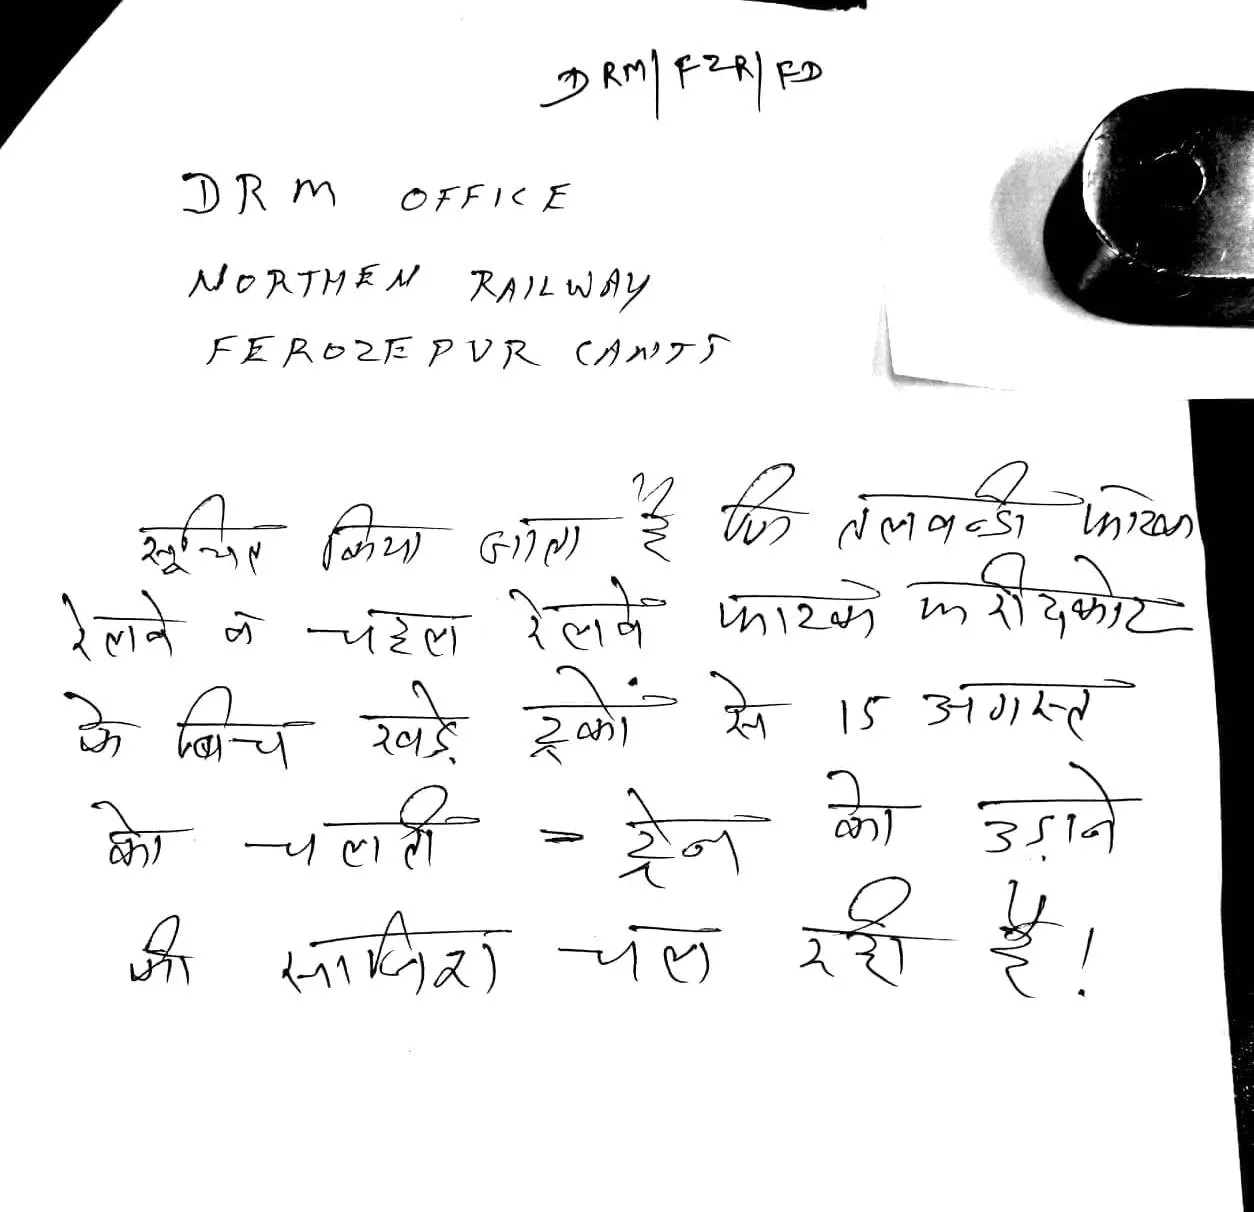 DRM/FZR/FD
DRM OFFICE
NORTHEN RAILWAY
FEROZEPUR CANTT
सूचित किया जाता है कि तलवन्डी फाटक
रेलवे व पहेल रेलवे फाटक फरीदकोट
के बिच खडे ट्रकों से 15 अगस्त
को चलती - ट्रेन को उड़ाने
की साजिश चल रही है!